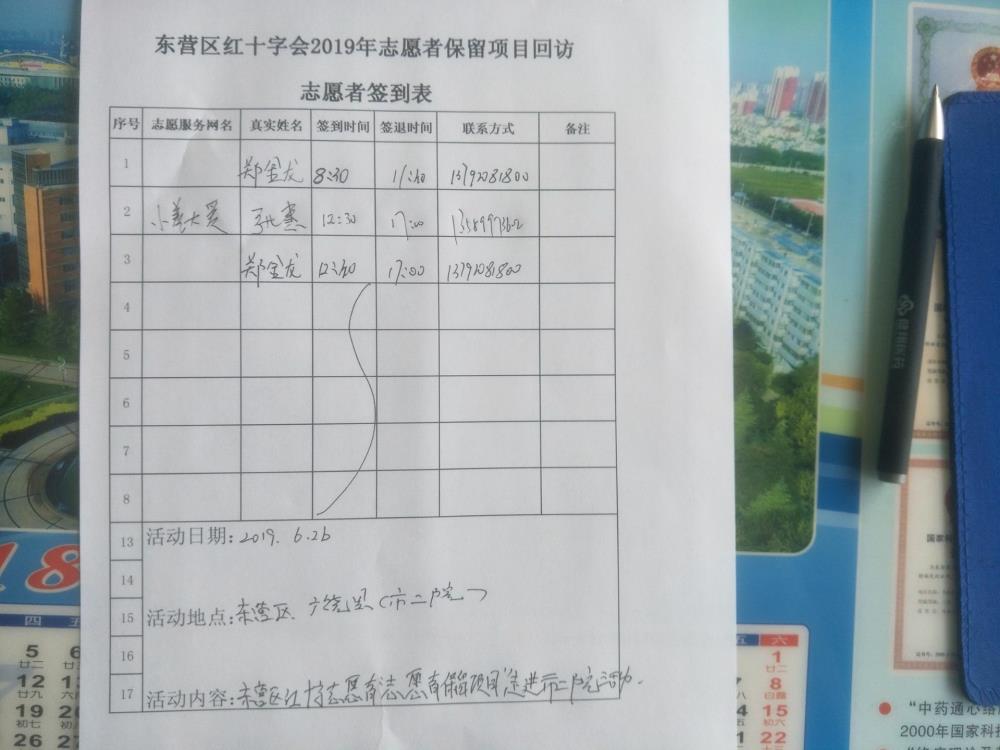 东营区红十字会2019年志愿者保留项目回访
志愿者签到表
序号 志愿服务网名 真实姓名 签到时间 签退时间 联系方式 备注
1 郑金龙 8:30 11:40 13792081800
2 小美大爱 12:30 17:00
3 郑金龙 12:40 17:00 13792081800
4
5
6
7
8
13 活动日期:2019.6.26
14
15 活动地点:东营区、广饶县(市二院)
16
17 活动内容:东营区红十字志愿者志愿者保留项目走进市二院活动.
18
四 五
5 6
廿二
12 13
廿九
19 20
初七
26 27
五 六
1
廿二
7 8
白露
14 15
初六
22
国家
“中药通心络
2000年国家科技